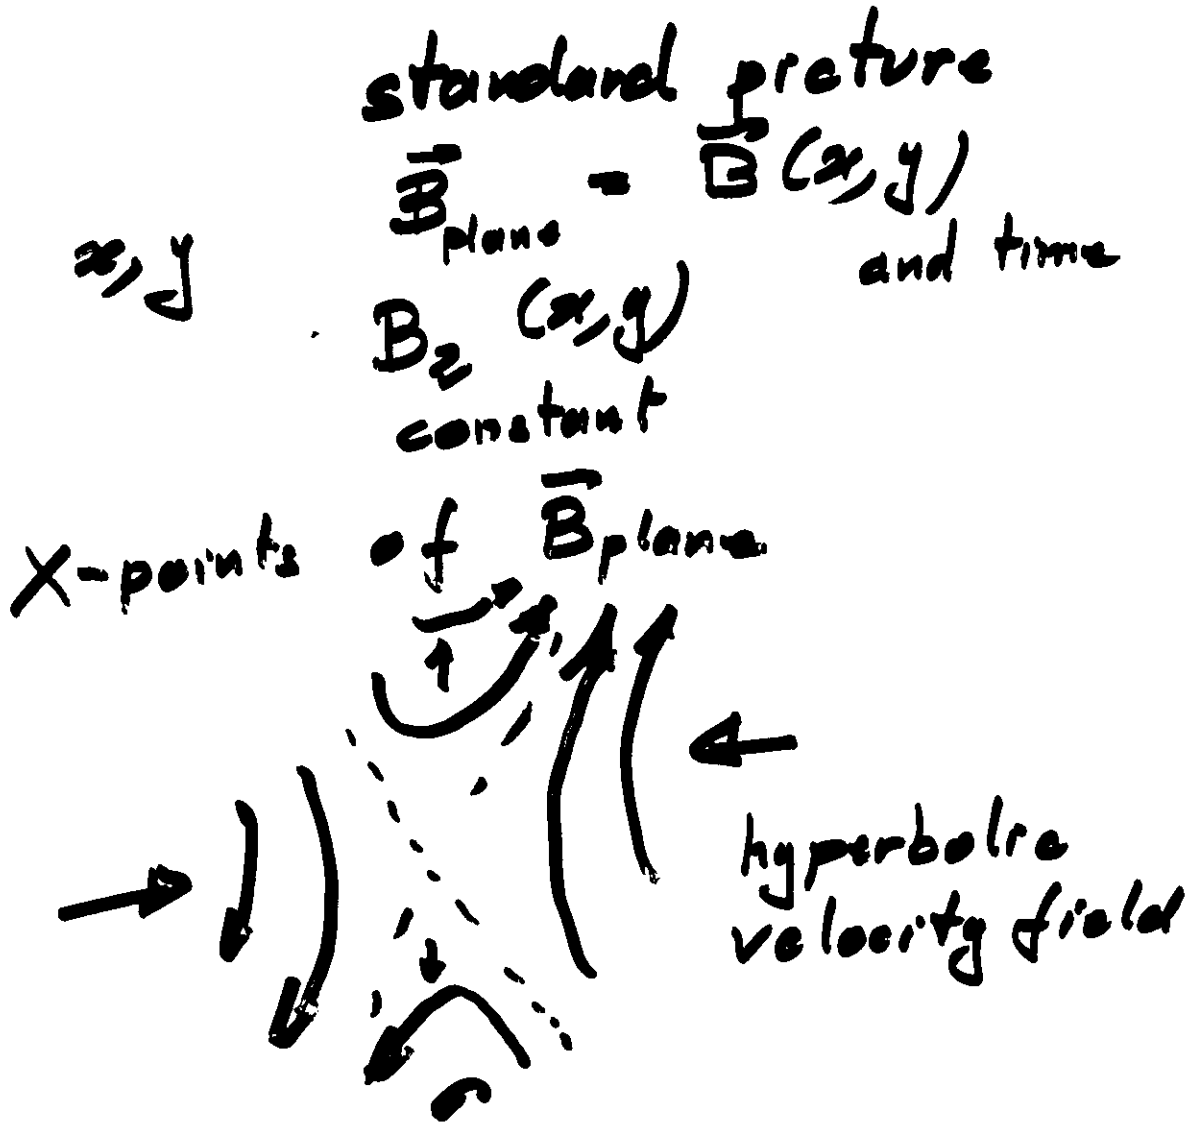 standard picture
B⃗plane = B⃗(x,y)
and time
x, y
Bz (x,y)
constant
X-points of B⃗plane
hyperbolic
velocity field